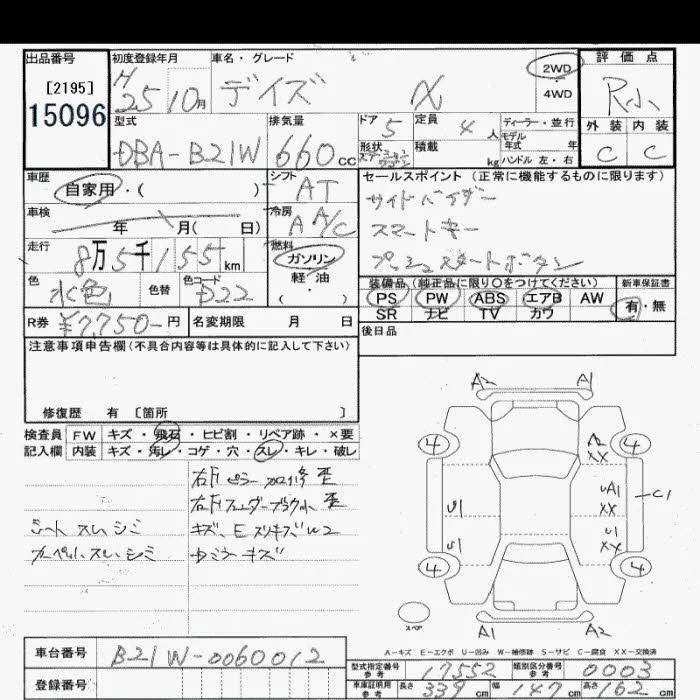 出品番号 初度登録年月 車名・グレード 評価点
[2195] H 25 10月 デイズ X 2WD・4WD R小
15096 外装 内装
型式 排気量 ドア 5 定員 4人 ディーラー・並行
DBA-B21W 660cc 形状 積載 kg モデル年式 年 C C
ハンドル 左・右
車歴 シフト AT セールスポイント (正常に機能するものに限ります)
自家用・( ) サイドバイザー
車検 冷房 A A/C スマートキー
年 月( 日) プッシュスタートボタン
走行 燃料
8万5千155km ガソリン
色 色替 色コード 軽・油 装備品 (純正品に限り○をつけてください) 新車保証書
水色 P22 ・( ) PS PW ABS エアB AW 有・無
R券 ¥7,750-円 名変期限 月 日 SR ナビ TV カワ
注意事項申告欄(不具合内容等は具体的に記入して下さい) 後日品
修復歴 有 [箇所 ]
検査員 FW キズ・飛石・ヒビ割・リペア跡・×要
記入欄 内装 キズ・汚レ・コゲ・穴・スレ・キレ・破レ
右F ピラー 修 歪
右F
シート スレ、シミ キズ、E スリキズ W2
カーペット スレ、シミ ミラーキズ
A2 A1
4 4
A2 XX
U1 UA1 XX C1
U1 U1 XX
4 4
スペア A1 A2
A-キズ E-エクボ U-凹み W-補修跡 S-サビ C-腐食 XX-交換済
車台番号 B21W-0060012 型式指定番号 参考 17552 類別区分番号 参考 0003
登録番号 車庫証明用 参考 長さ 339cm 幅 147cm 高さ 162cm